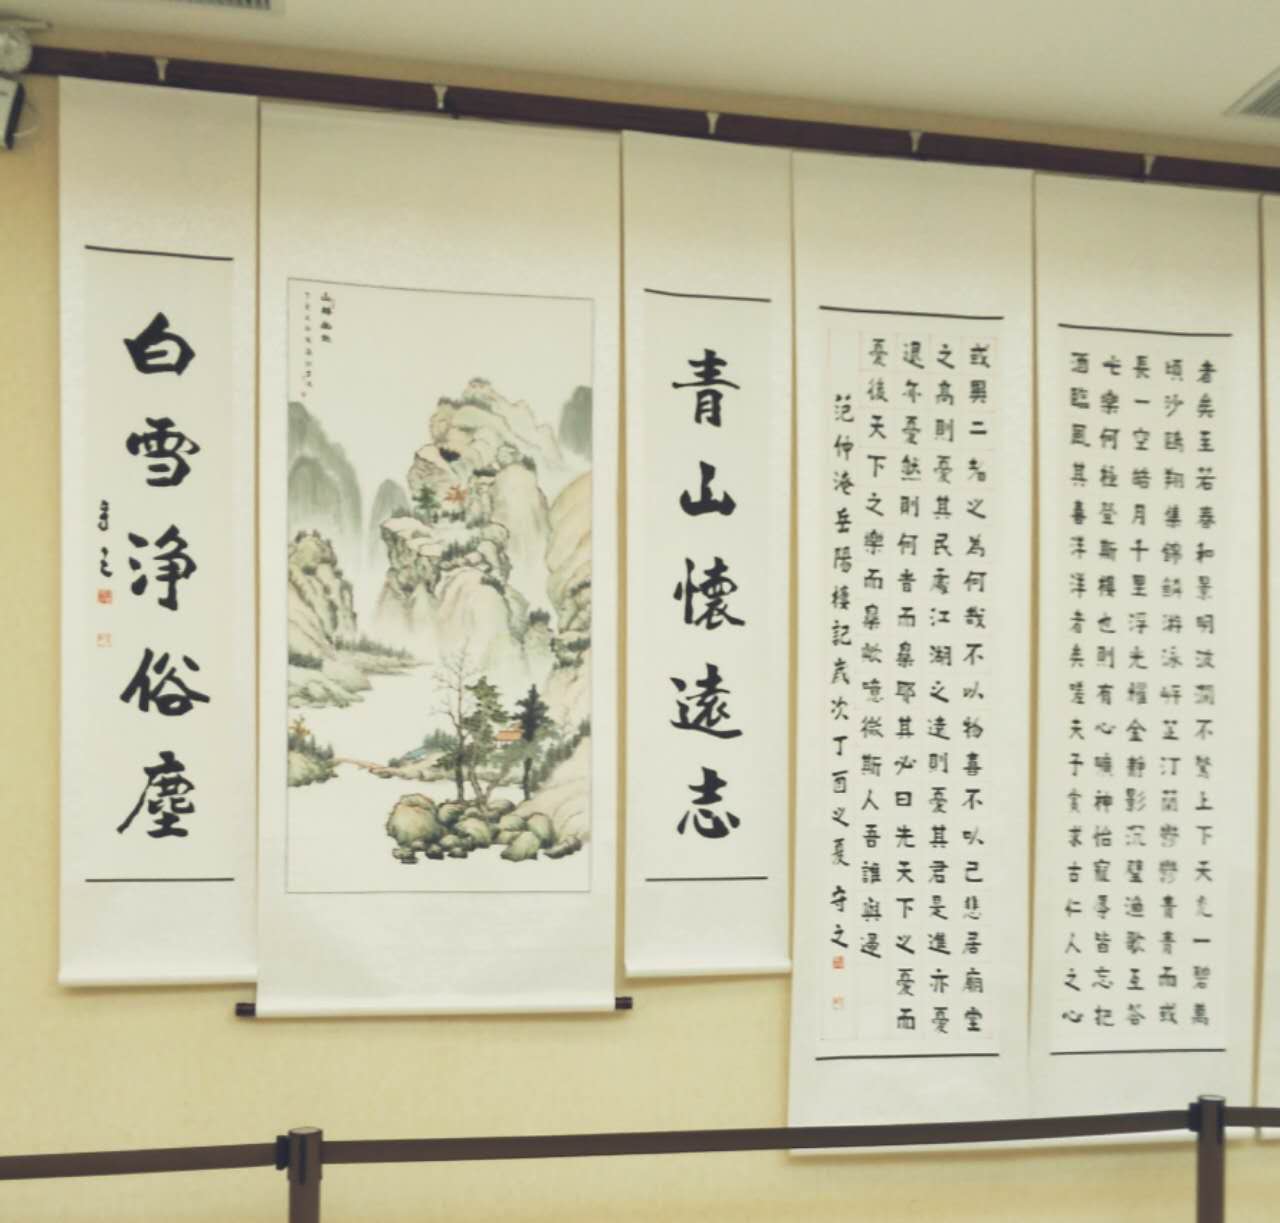 者矣至若春和景明波瀾不驚上下天光一碧萬
頃沙鷗翔集錦鱗游泳岸芷汀蘭鬱鬱青青而或
長一空皓月千里浮光耀金靜影沉璧漁歌互答
此樂何極登斯樓也則有心曠神怡寵辱皆忘把
酒臨風其喜洋洋者矣嗟夫予嘗求古仁人之心
或異二者之為何哉不以物喜不以己悲居廟堂
之高則憂其民處江湖之遠則憂其君是進亦憂
退亦憂然則何旹而樂耶其必曰先天下之憂而
憂後天下之樂而樂歟噫微斯人吾誰與
范仲淹岳陽樓記歲次丁酉之夏 守之
青山懷遠志
白雪淨俗塵
守之